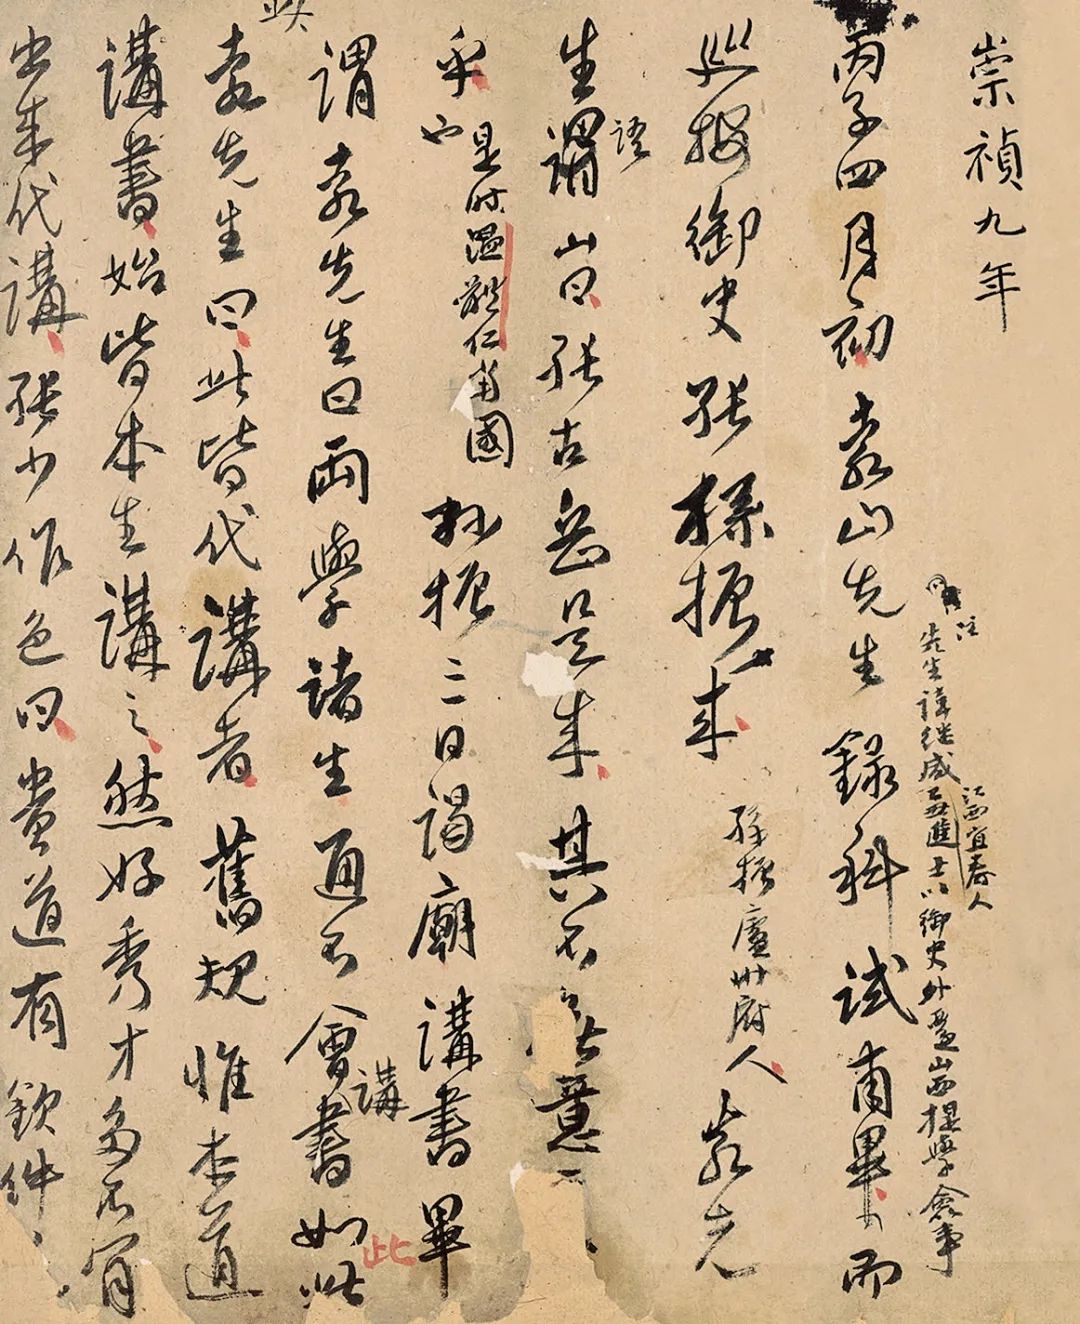 崇禎九年
丙子四月初袁山先生錄科試甫畢而
注
先生諱継咸乙丑進士以御史外遷山西提學僉事
江西宜春人
巡按御史張孫振来
孫振廬州府人
袁先
生謂山曰張古岳来其不意
語
乎也
是时溫體仁當國
孫振三日謁廟講書畢
謂袁先生曰兩學諸生通不會書如此
講
此
袁先生曰此皆代講者舊規惟本道
講書始皆本生講之然好秀才多不肯
出来代講張少作色曰貴道有欽件